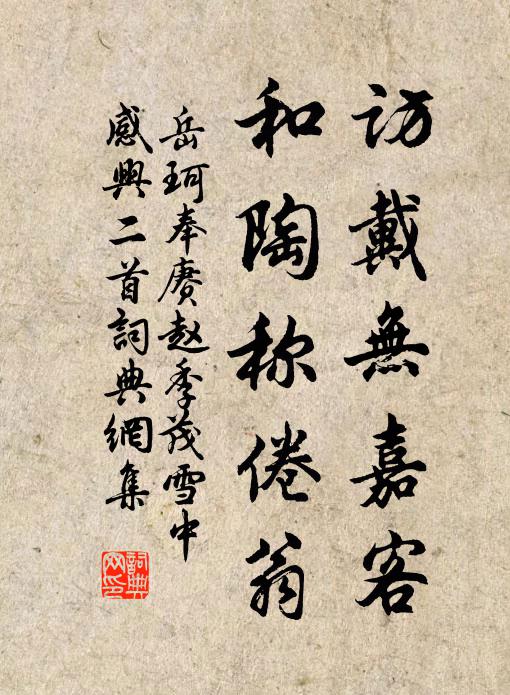 訪戴無嘉客
和陶称倦翁
岳珂奉賡赵季茂雪中
感興二首詞典網集
詞典
网印